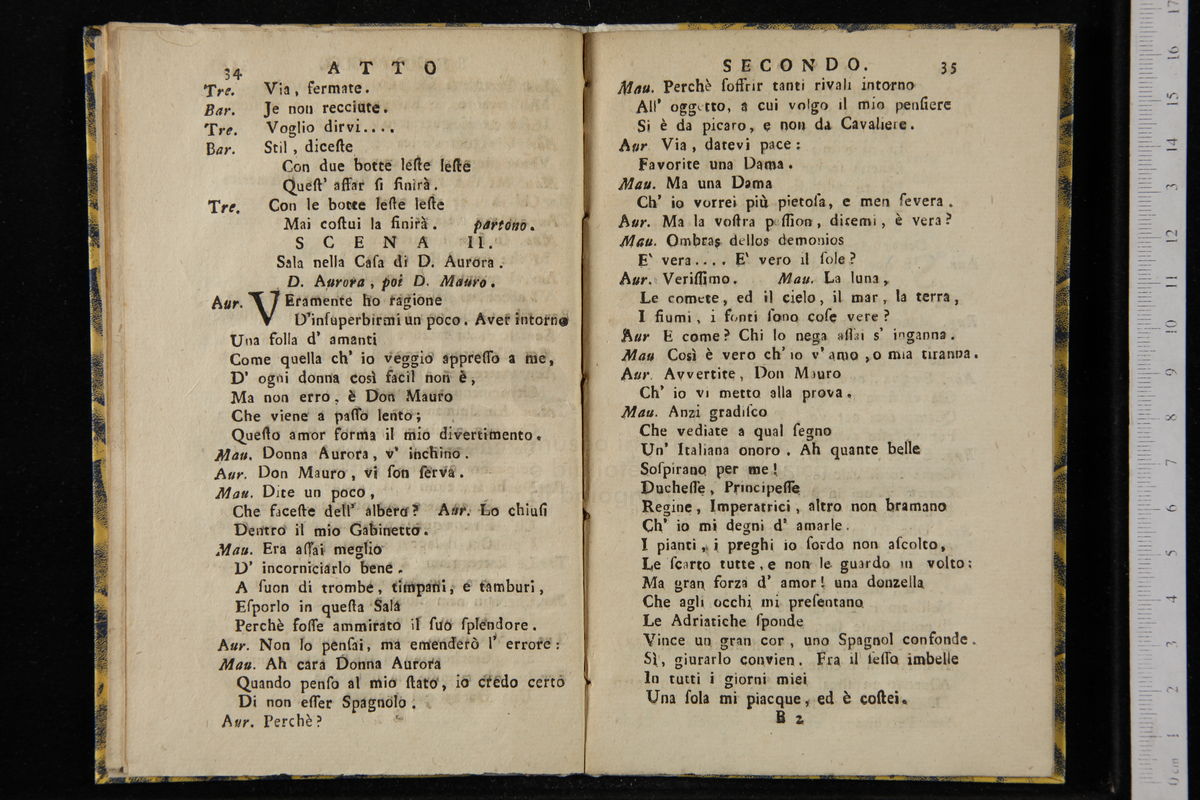 34 ATTO
Tre. Via, fermate.
Bar. Je non recciute.
Tre. Voglio dirvi....
Bar. Stil, diceſte
Con due botte leſte leſte
Queſt' affar ſi finirà.
Tre. Con le botte leſte leſte
Mai coſtui la finirà. partono.
SCENA II.
Sala nella Caſa di D. Aurora.
D. Aurora, poi D. Mauro.
Aur. VEramente ho ragione
D'inſuperbirmi un poco. Aver intorno
Una folla d' amanti
Come quella ch' io veggio appreſſo a me,
D' ogni donna così facil non è,
Ma non erro, è Don Mauro
Che viene a paſſo lento;
Queſto amor forma il mio divertimento.
Mau. Donna Aurora, v' inchino.
Aur. Don Mauro, vi ſon ſerva.
Mau. Dite un poco,
Che faceſte dell' albero? Aur. Lo chiuſi
Dentro il mio Gabinetto.
Mau. Era aſſai meglio
D' incorniciarlo bene.
A ſuon di trombe, timpani, e tamburi,
Eſporlo in queſta Sala
Perchè foſſe ammirato il ſuo ſplendore.
Aur. Non lo penſai, ma emenderò l' errore:
Mau. Ah cara Donna Aurora
Quando penſo al mio ſtato, io credo certo
Di non eſſer Spagnolo.
Aur. Perchè?
SECONDO. 35
Mau. Perchè ſoffrir tanti rivali intorno
All' oggetto, a cui volgo il mio penſiere
Si è da picaro, e non da Cavaliere.
Aur Via, datevi pace:
Favorite una Dama.
Mau. Ma una Dama
Ch' io vorrei più pietoſa, e men ſevera.
Aur. Ma la voſtra paſſion, ditemi, è vera?
Mau. Ombras dellos demonios
E' vera.... E' vero il ſole?
Aur. Veriſſimo. Mau. La luna,
Le comete, ed il cielo, il mar, la terra,
I fiumi, i fonti ſono coſe vere?
Aur E come? Chi lo nega aſſai s' inganna.
Mau Così è vero ch' io v' amo, o mia tiranna.
Aur. Avvertite, Don Mauro
Ch' io vi metto alla prova.
Mau. Anzi gradiſco
Che vediate a qual ſegno
Un' Italiana onoro. Ah quante belle
Soſpirano per me!
Ducheſſe, Principeſſe
Regine, Imperatrici, altro non bramano
Ch' io mi degni d' amarle.
I pianti, i preghi io ſordo non aſcolto,
Le ſcarto tutte, e non le guardo in volto:
Ma gran forza d' amor! una donzella
Che agli occhi mi preſentano
Le Adriatiche ſponde
Vince un gran cor, uno Spagnol confonde.
Sì, giurarlo convien. Fra il ſeſſo imbelle
In tutti i giorni miei
Una ſola mi piacque, ed è coſtei.
B 2